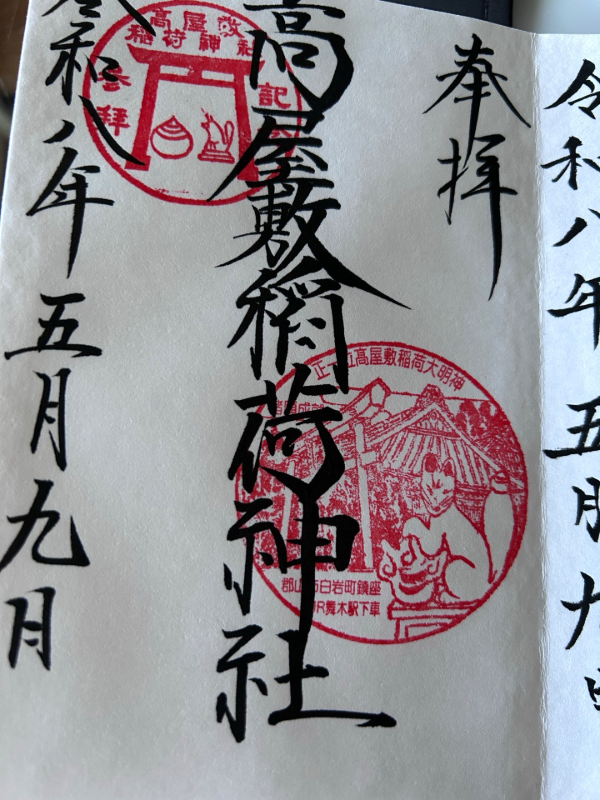 奉拝
高屋敷稲荷神社
令和八年五月九月
高屋敷
稲荷神社
参拝
記
正一位高屋敷稲荷大明神
郡山市白岩町鎮座
JR舞木駅下車
令和八年五月九